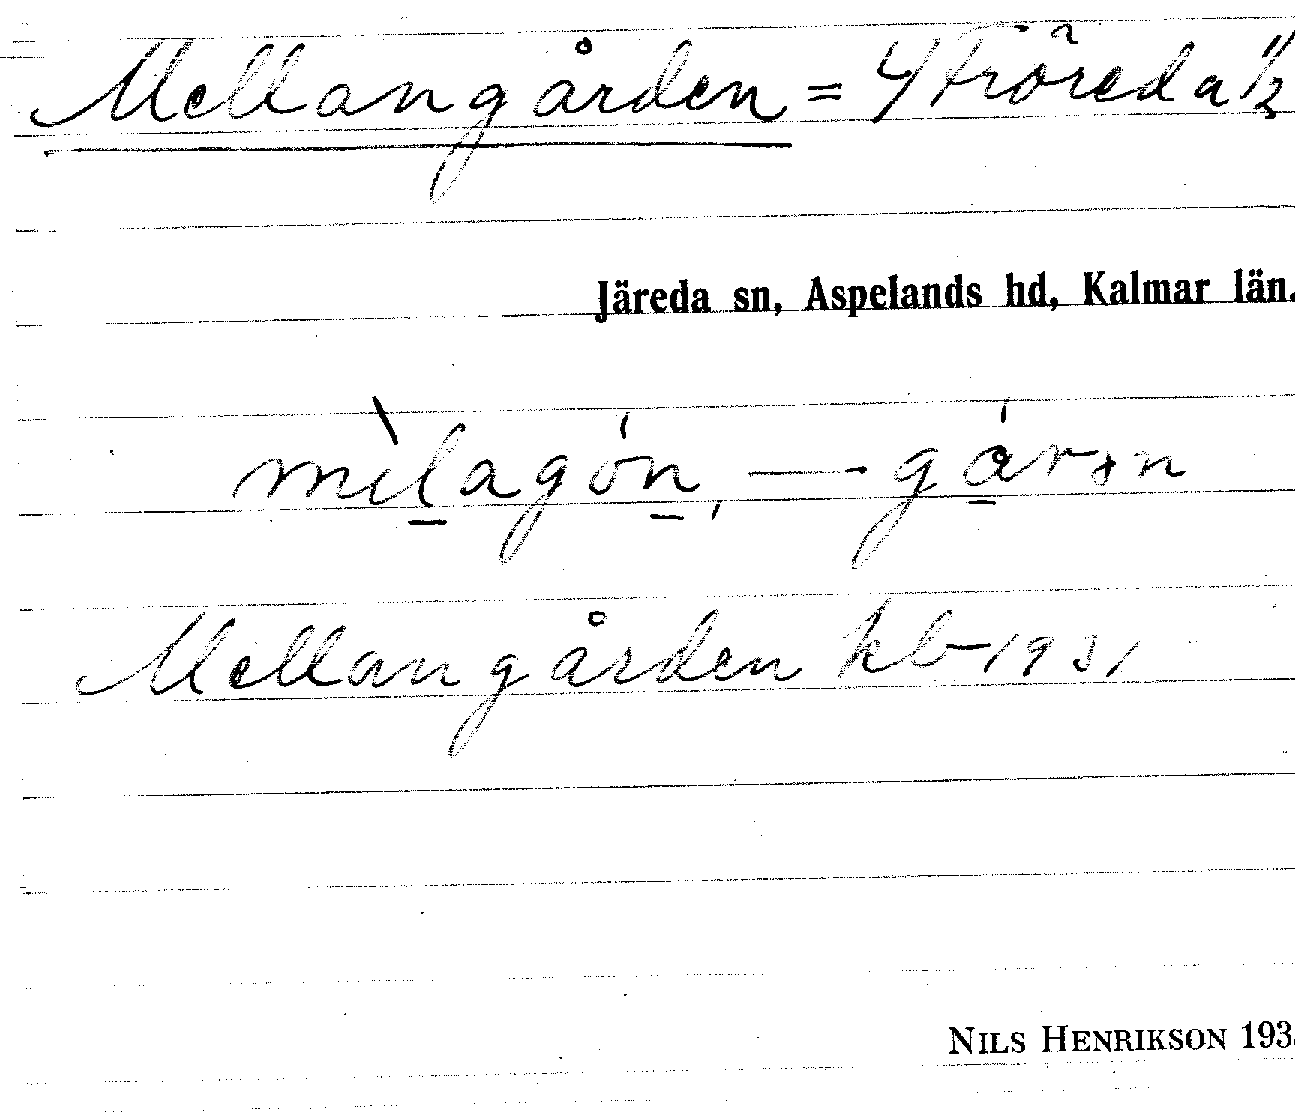 Mellangården = Y Fröreda 1/2
Järeda sn, Aspelands hd, Kalmar län.
Mellangården kb 1931
NILS HENRIKSON 193